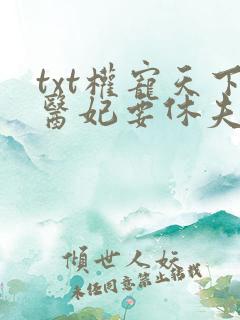 txt權寵天下
醫妃要休夫
傾世人妖
未經同意禁止轉載